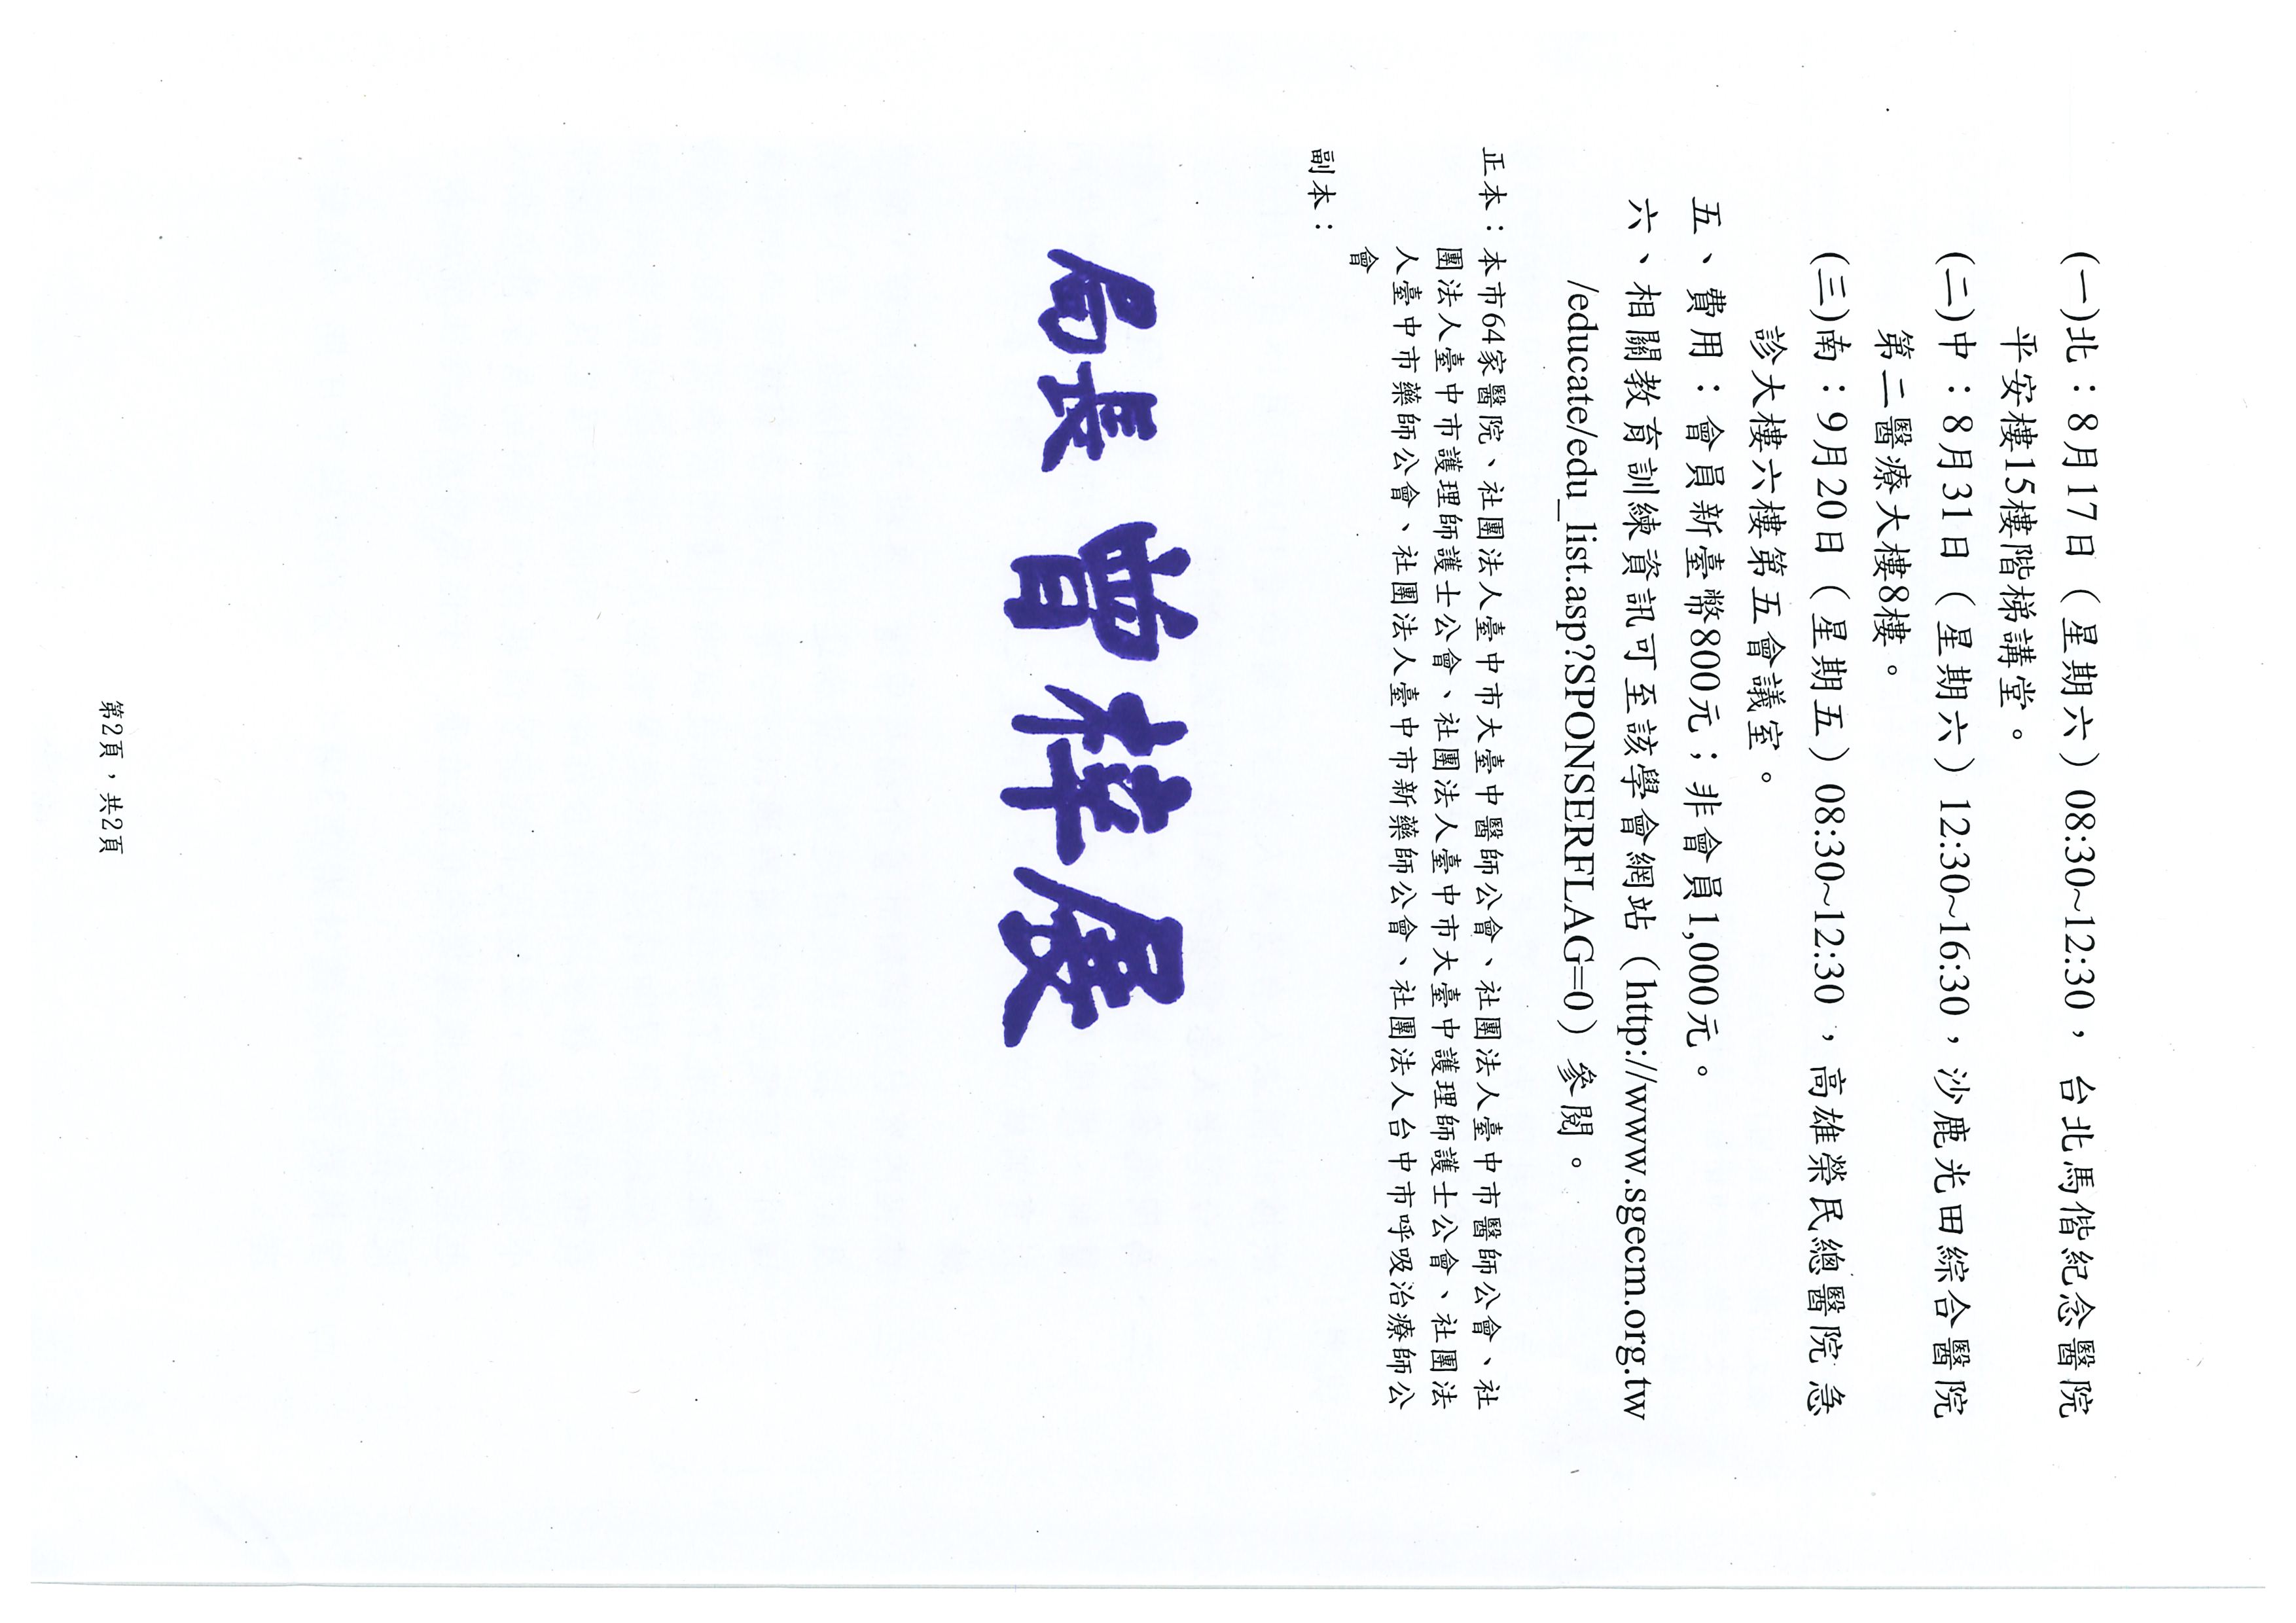 (一)北：8月17日（星期六）08:30~12:30，台北馬偕紀念醫院
平安樓15樓階梯講堂。
(二)中：8月31日（星期六）12:30~16:30，沙鹿光田綜合醫院
第二醫療大樓8樓。
(三)南：9月20日（星期五）08:30~12:30，高雄榮民總醫院急
診大樓六樓第五會議室。
五、費用：會員新臺幣800元；非會員1,000元。
六、相關教育訓練資訊可至該學會網站（http://www.sgecm.org.tw
/educate/edu_list.asp?SPONSERFLAG=0）參閱。
正本：本市64家醫院、社團法人臺中市大臺中醫師公會、社團法人臺中市醫師公會、社
團法人臺中市護理師護士公會、社團法人臺中市大臺中護理師護士公會、社團法
人臺中市藥師公會、社團法人臺中市新藥師公會、社團法人台中市呼吸治療師公
會
副本：
局長 曾梓展
第2頁，共2頁